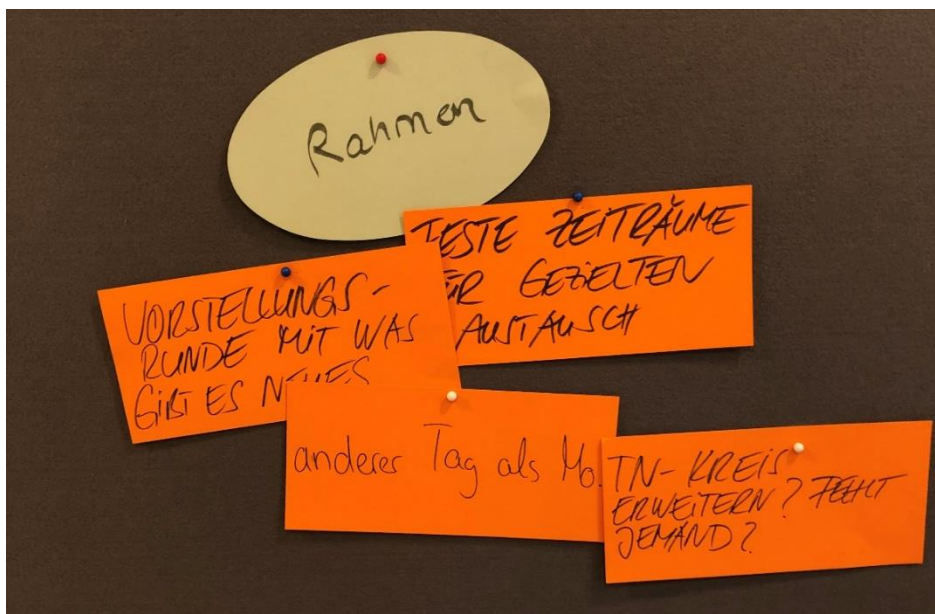 Rahmen
FESTE ZEITRÄUME
FÜR GEZIELTEN
AUSTAUSCH
VORSTELLUNGS-
RUNDE MIT WAS
GIBT ES NEUES
anderer Tag als Mo.
TN-KREIS
ERWEITERN? FEHLT
JEMAND?